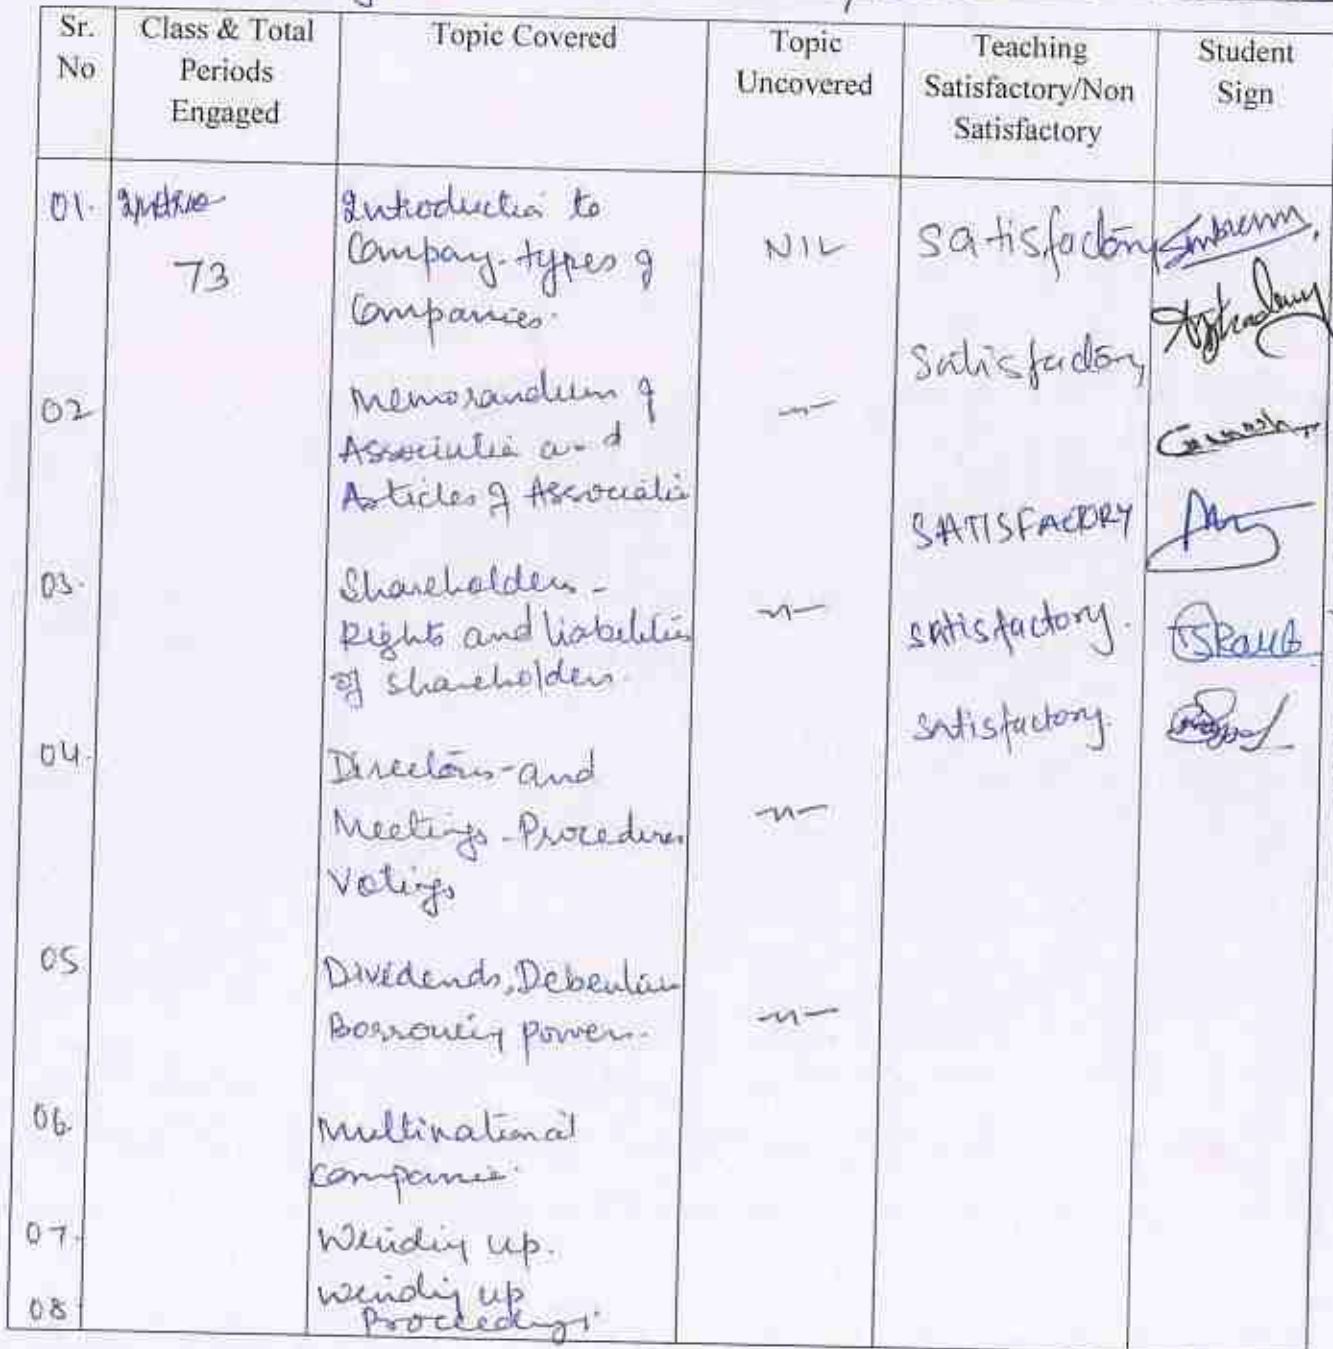 Sr. No
Class & Total Periods Engaged
Topic Covered
Topic Uncovered
Teaching Satisfactory/Non Satisfactory
Student Sign
01.
73
Introduction to
Company-types of
Companies.
NIL
Satisfactory
Satisfactory
02
Memorandum of
Association and
Articles of Association
—"—
SATISFACTORY
03.
Shareholders -
Rights and liabilities
of shareholders.
—"—
satisfactory.
satisfactory.
04.
Directors - and
Meetings - Procedures
Votings
—"—
05
Dividends, Debenture
Borrowing powers.
—"—
06.
Multinational
companies.
07.
Winding up.
08
winding up
Proceedings.